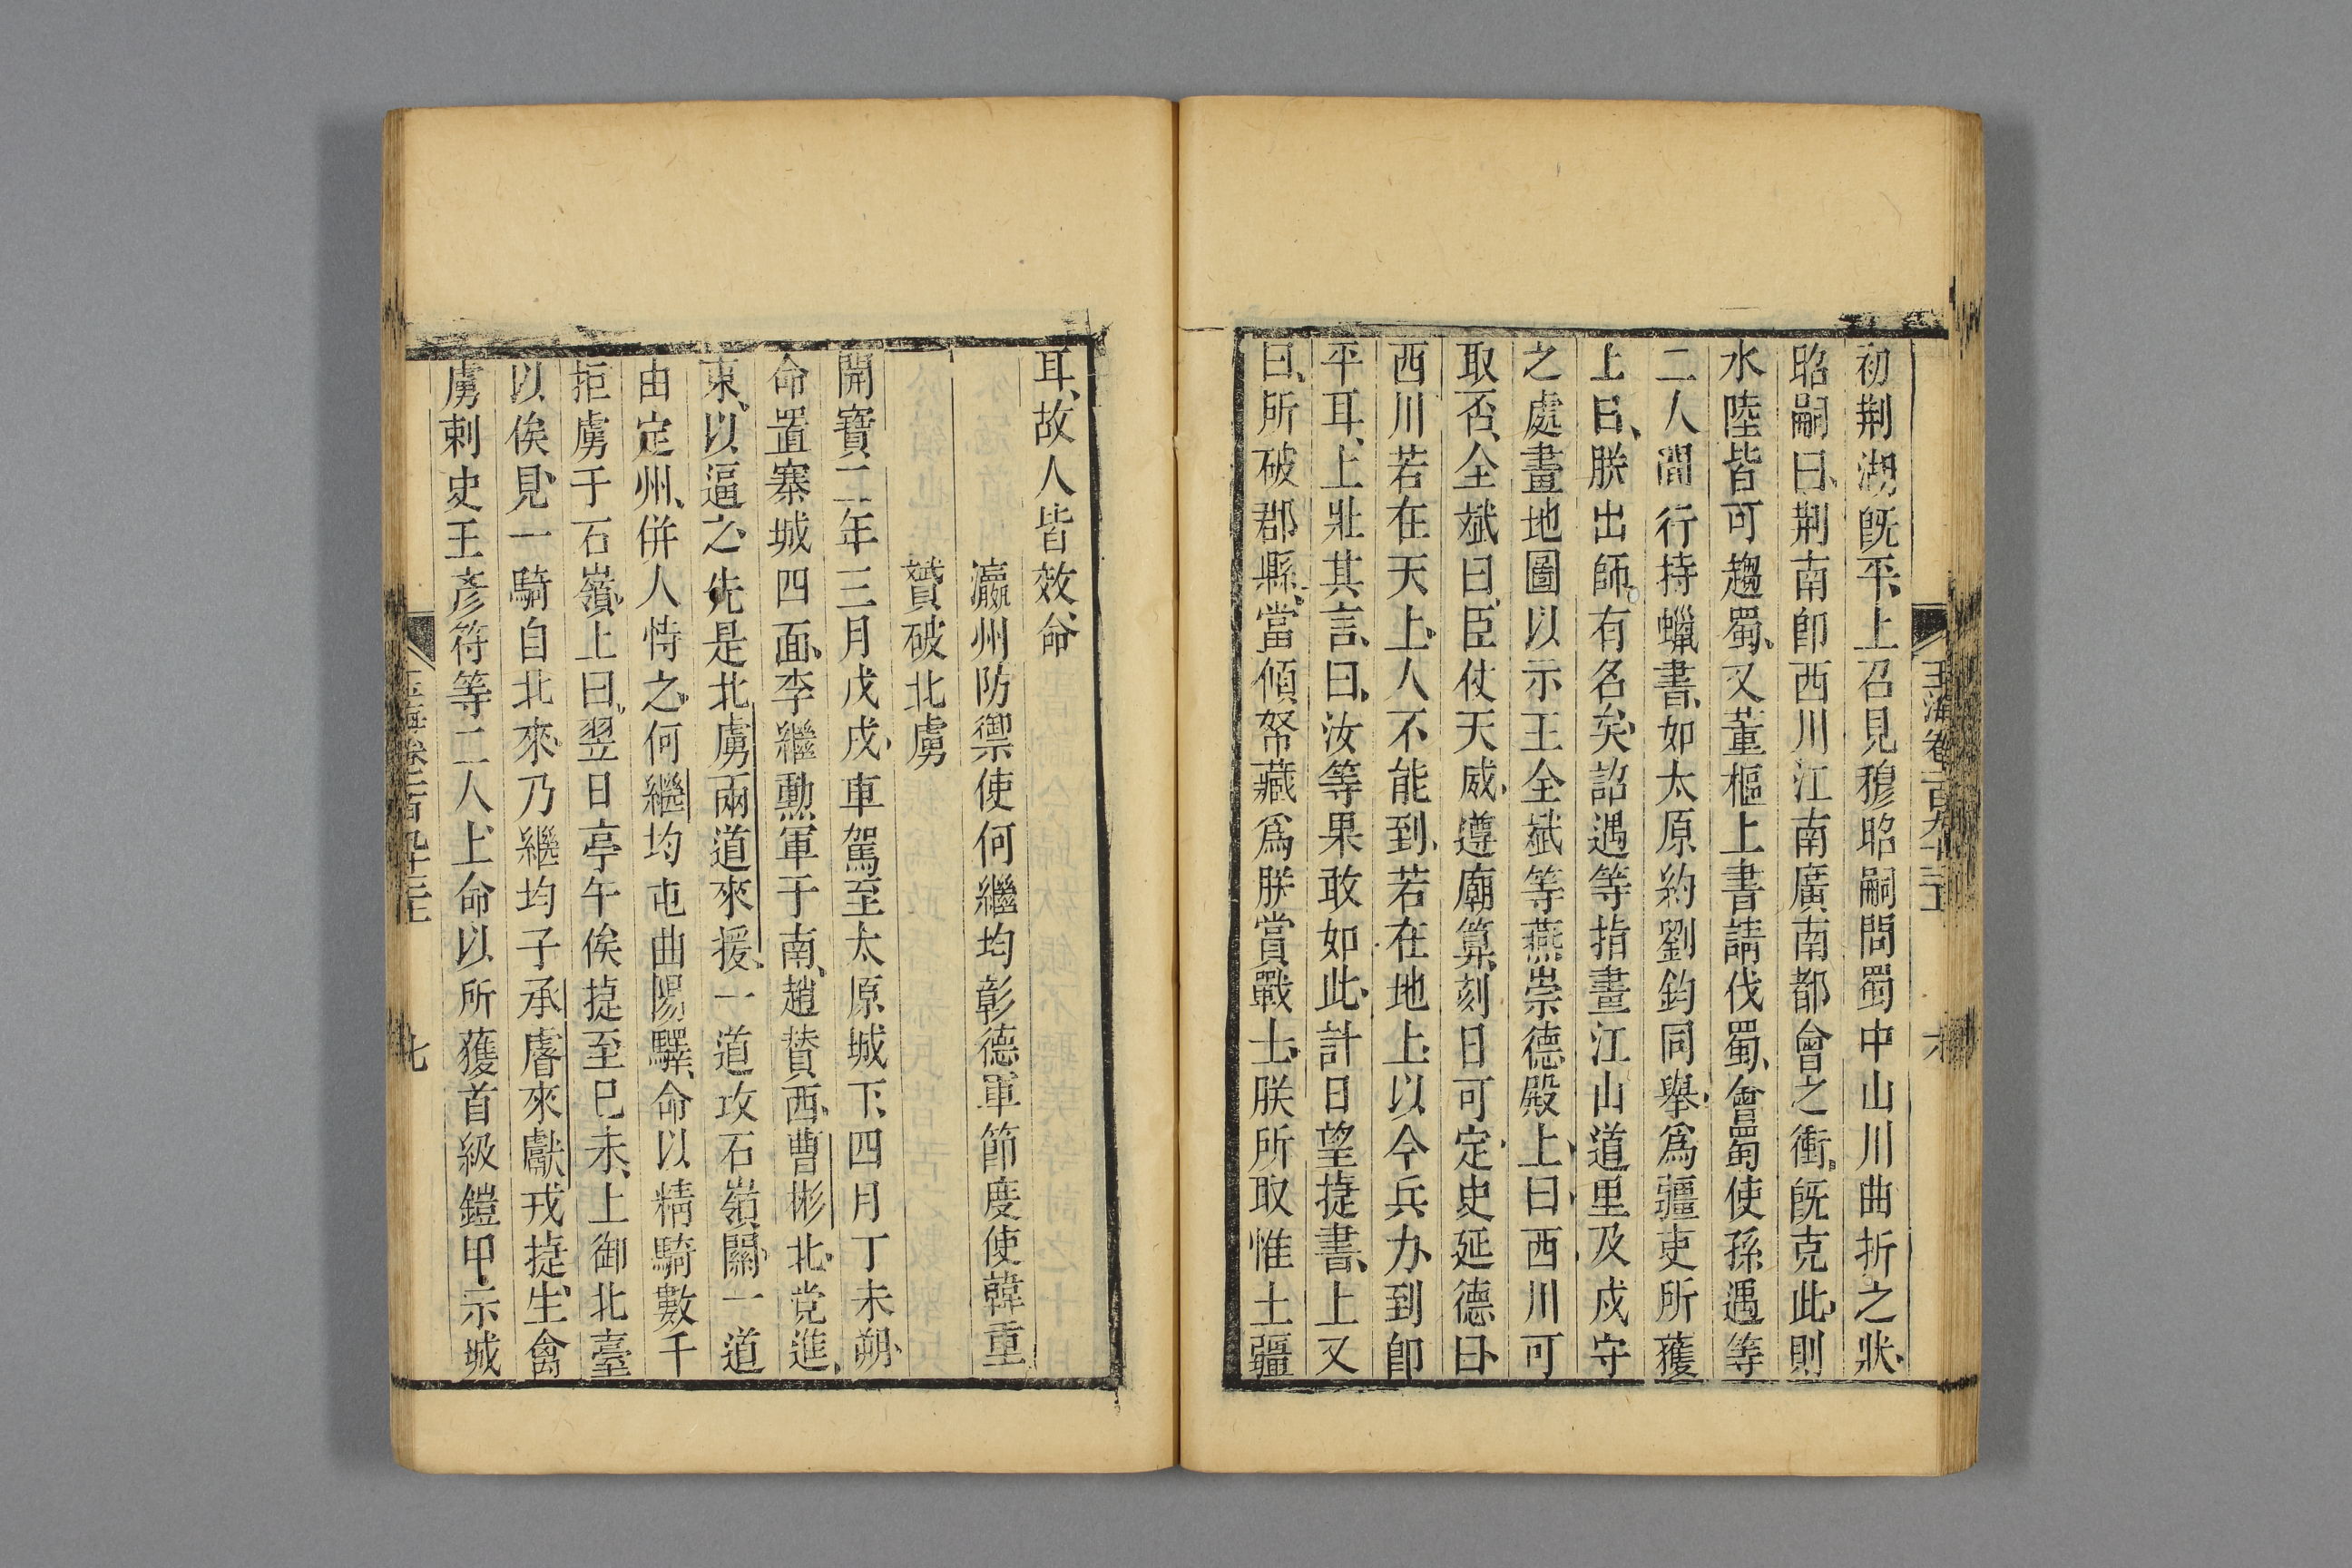 初荆湖旣平、上召見穆昭嗣問蜀中山川曲折之狀、
昭嗣曰、荆南卽西川江南廣南都會之衝、旣克此、則
水陸皆可趨蜀、又董樞上書請伐蜀、會蜀使孫遇等
二人間行持蠟書、如太原約劉鈞同舉、爲疆吏所獲
上曰、朕出師。有名矣、詔遇等指畫江山道里及戍守
之處畫地圖以示王全斌等燕崇德殿上、曰、西川可
取否、全斌曰、臣仗天威、遵廟算、刻日可定、史延德曰、
西川若在天上、人不能到、若在地上、以今兵力、到卽
平耳、上壯其言、曰、汝等果敢如此、計日望捷書、上又
曰、所破郡縣、當傾帑藏爲朕賞戰士、朕所取惟土疆
玉海卷一百九十三
六
耳、故人皆效命
瀛州防禦使何繼均彰德軍節度使韓重
贇破北虜
開寶二年三月戊戌、車駕至太原城下、四月丁未朔、
命置寨城四面、李繼勳軍于南、趙贊西、曹彬北、党進
東、以逼之、先是北虜兩道來援、一道攻石嶺關、一道
由定州、併人恃之、何繼均屯曲陽驛、命以精騎數千
拒虜于石嶺、上曰、翌日亭午俟捷至巳未、上御北臺
以俟見、一騎自北來、乃繼均子承睿來獻戎捷、生禽
虜刺史王彥符等二人、上命以所獲首級鎧甲示城
七